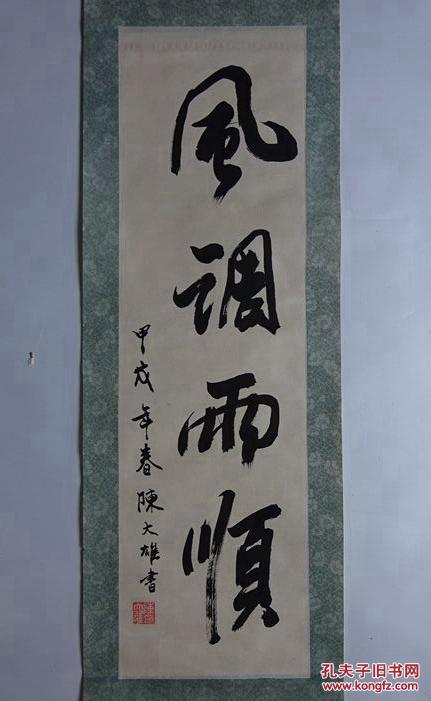 風調雨順
甲戌年春陳大雄書
孔夫子旧书网
www.kongfz.com